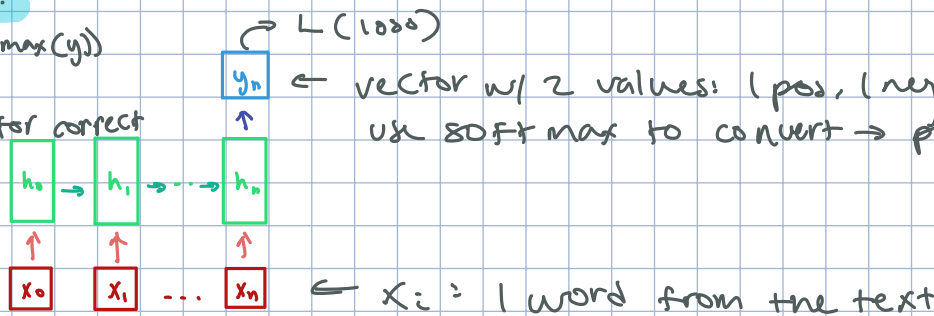 L (loss)
max(y))
yₙ ← vector w/ 2 values: 1 pos, 1 neg
for correct
use softmax to convert →
h₀ → h₁ → ... → hₙ
x₀ x₁ ... xₙ ← xᵢ : 1 word from the text